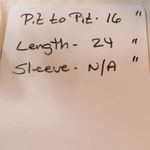 Pit to Pit - 16 "
Length - 24 "
Sleeve - N/A "